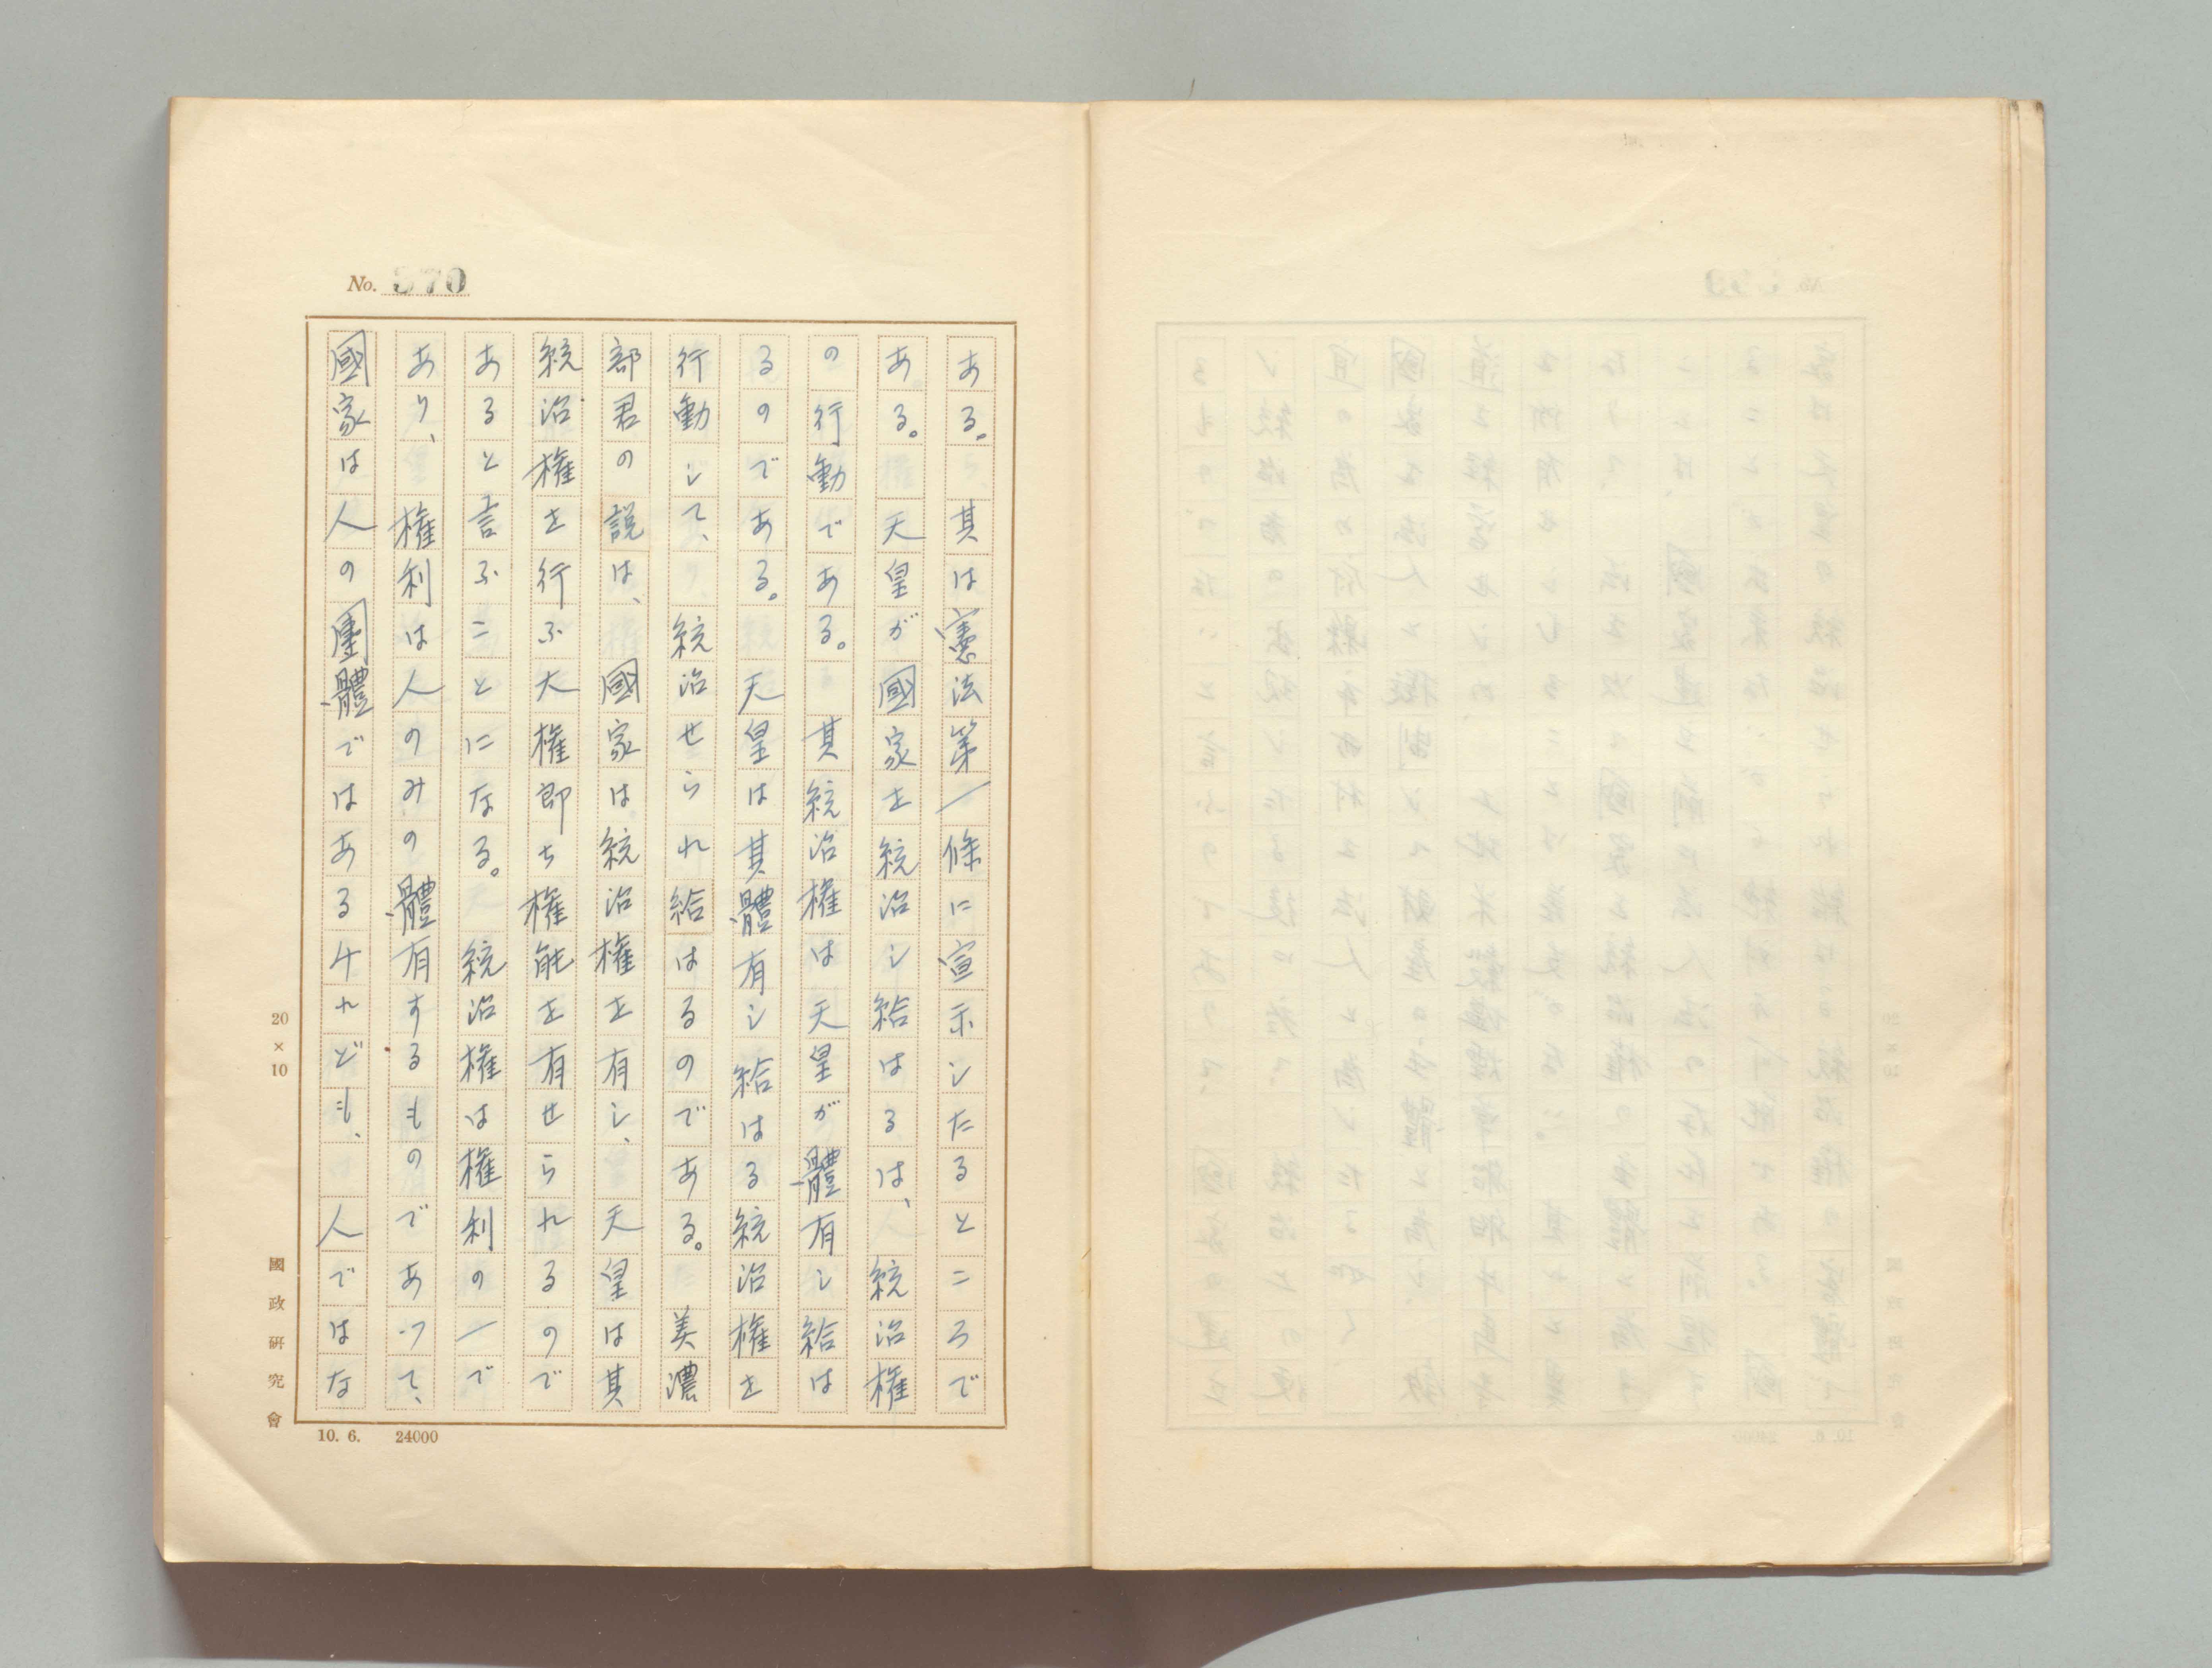 No. 370
ある。其は憲法第一條に宣示シたるところで
ある。天皇が國家を統治シ給はるは、統治権
の行動である。其統治権は天皇が體有シ給は
るのである。天皇は其體有シ給はる統治権を
行動シて、統治せられ給はるのである。美濃
部君の説は、國家は統治権を有シ、天皇は其
統治権を行ふ大権即ち権能を有せられるので
あると言ふことになる。統治権は権利の一で
あり、権利は人のみの體有するものであつて、
國家は人の團體ではあるけれども、人ではな
20×10
國政研究會
10. 6. 24000